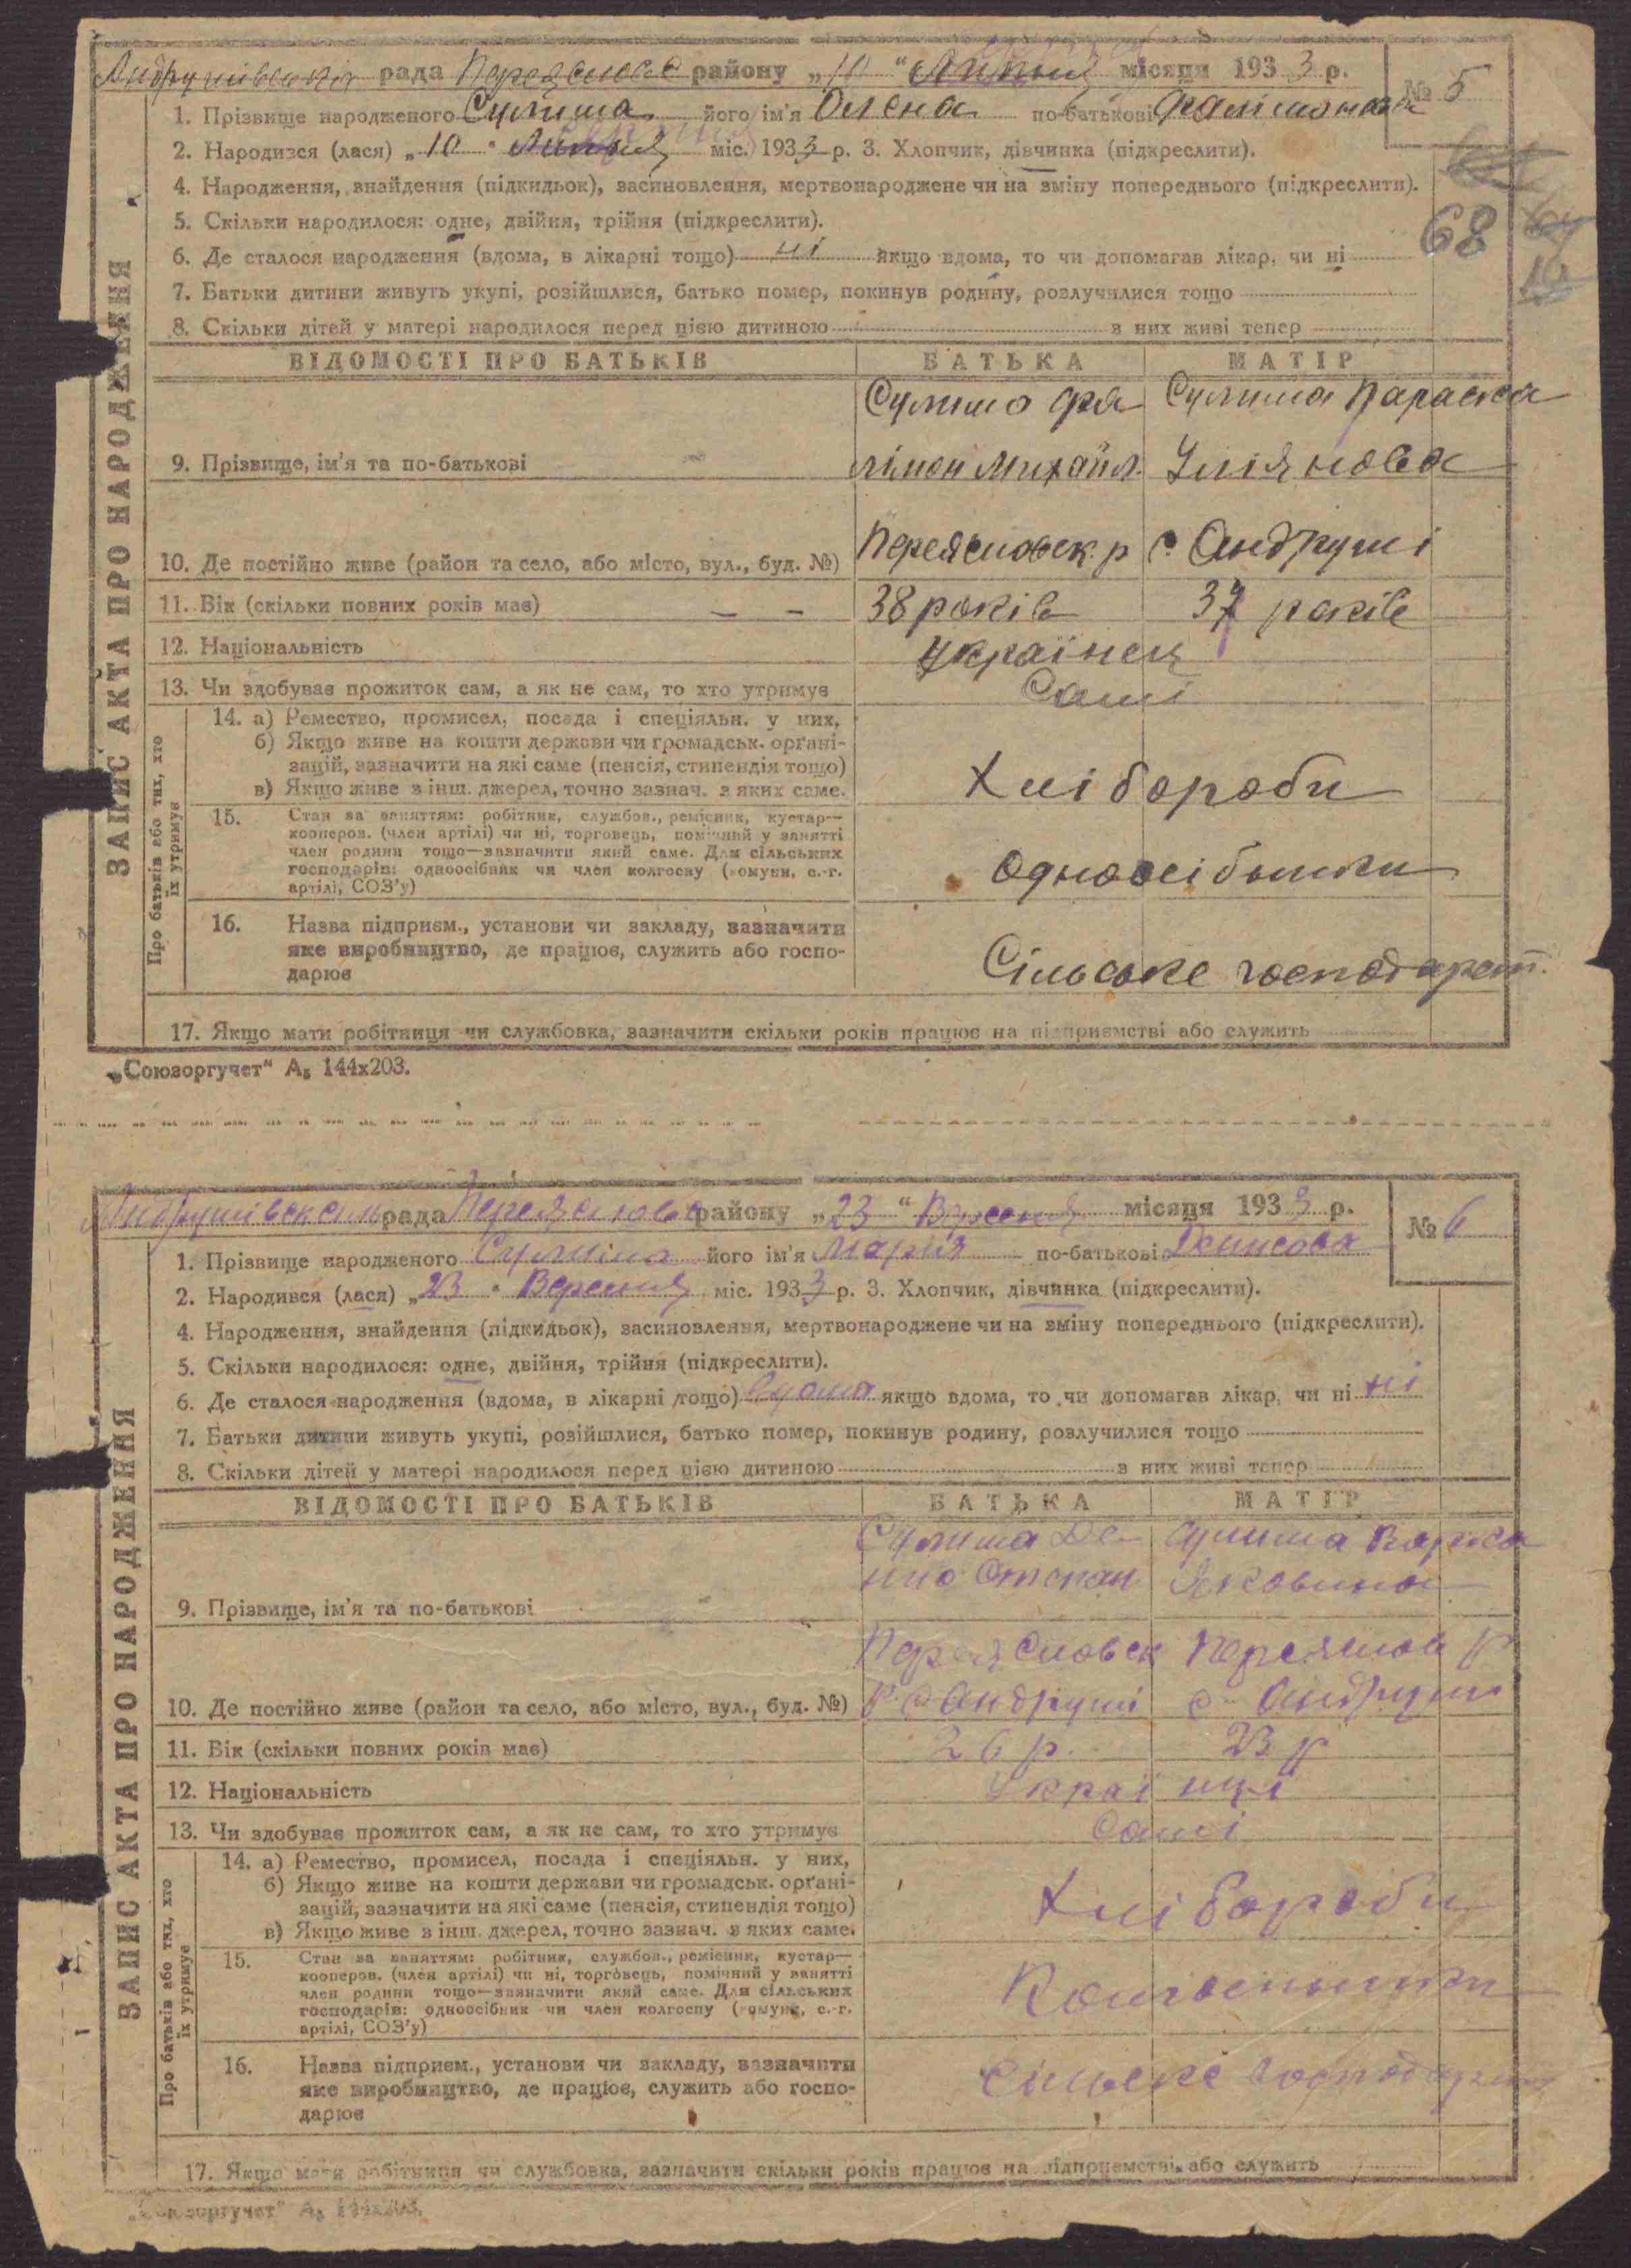 Андрушівська рада Переяслове району „10“ місяця 1933 р.
№ 5
1. Прізвище народженого Сулима його ім'я Олена по-батькові
2. Народився (лася) „10“ міс. 1933 р. 3. Хлопчик, дівчинка (підкреслити).
4. Народження, знайдення (підкидьок), засиновлення, мертвонароджене чи на зміну попереднього (підкреслити).
5. Скільки народилося: одне, двійня, трійня (підкреслити).
68
6. Де сталося народження (вдома, в лікарні тощо) ні якщо вдома, то чи допомагав лікар, чи ні
7. Батьки дитини живуть укупі, розійшлися, батько помер, покинув родину, розлучилися тощо
8. Скільки дітей у матері народилося перед цією дитиною з них живі тепер
ВІДОМОСТІ ПРО БАТЬКІВ БАТЬКА МАТІР
Сулимо Фи- Сулима Параска
9. Прізвище, ім'я та по-батькові лімон Михайл. Улія нова
10. Де постійно живе (район та село, або місто, вул., буд. №) Переясловск. р с. Андруші
11. Вік (скільки повних років має) — — 38 років 37 років
12. Національність українец
13. Чи здобуває прожиток сам, а як не сам, то хто утримує Самі
14. а) Ремество, промисел, посада і спеціяльн. у них,
б) Якщо живе на кошти держави чи громадськ. орґані-
зацій, зазначити на які саме (пенсія, стипендія тощо)
в) Якщо живе з інш. джерел, точно зазнач. з яких саме.
Хлібороби
15. Стан за заняттям: робітник, службов., ремісник, кустар—
кооперов. (член артілі) чи ні, торговець, помічний у занятті
член родини тощо—зазначити який саме. Для сільських
господарів: одноосібник чи член колгоспу (комуни, с.-г.
артілі, СОЗ'у)
одноосібники
16. Назва підприєм., установи чи закладу, зазначити
яке виробництво, де працює, служить або госпо-
дарює
Сільське господарст.
17. Якщо мати робітниця чи службовка, зазначити скільки років працює на підприємстві або служить
ЗАПИС АКТА ПРО НАРОДЖЕННЯ
Про батьків або тих, хто
їх утримує
„Союзоргучет“ А₅ 144х203.
рада Переяслове району „23“ Вересня місяця 1933 р.
№ 6
1. Прізвище народженого Сулима його ім'я Марія по-батькові Денисова
2. Народився (лася) „23“ Вересня міс. 1933 р. 3. Хлопчик, дівчинка (підкреслити).
4. Народження, знайдення (підкидьок), засиновлення, мертвонароджене чи на зміну попереднього (підкреслити).
5. Скільки народилося: одне, двійня, трійня (підкреслити).
6. Де сталося народження (вдома, в лікарні тощо) вдома якщо вдома, то чи допомагав лікар, чи ні ні
7. Батьки дитини живуть укупі, розійшлися, батько помер, покинув родину, розлучилися тощо
8. Скільки дітей у матері народилося перед цією дитиною з них живі тепер
ВІДОМОСТІ ПРО БАТЬКІВ БАТЬКА МАТІР
Сулима Де- Сулима Варка
9. Прізвище, ім'я та по-батькові нис Степан Яковина
Переясловск Переяслов р
10. Де постійно живе (район та село, або місто, вул., буд. №) р. с Андруші с. Андруші
11. Вік (скільки повних років має) 26 р. 23 р
12. Національність Українці
13. Чи здобуває прожиток сам, а як не сам, то хто утримує Самі
14. а) Ремество, промисел, посада і спеціяльн. у них,
б) Якщо живе на кошти держави чи громадськ. орґані-
зацій, зазначити на які саме (пенсія, стипендія тощо)
в) Якщо живе з інш. джерел, точно зазнач. з яких саме.
Хлібороби
15. Стан за заняттям: робітник, службов., ремісник, кустар—
кооперов. (член артілі) чи ні, торговець, помічний у занятті
член родини тощо—зазначити який саме. Для сільських
господарів: одноосібник чи член колгоспу (комуни, с.-г.
артілі, СОЗ'у)
Колгоспники
16. Назва підприєм., установи чи закладу, зазначити
яке виробництво, де працює, служить або госпо-
дарює
Сільске господарство
17. Якщо мати робітниця чи службовка, зазначити скільки років працює на підприємстві або служить
ЗАПИС АКТА ПРО НАРОДЖЕННЯ
Про батьків або тих, хто
їх утримує
„Союзоргучет“ А₅ 144х203.